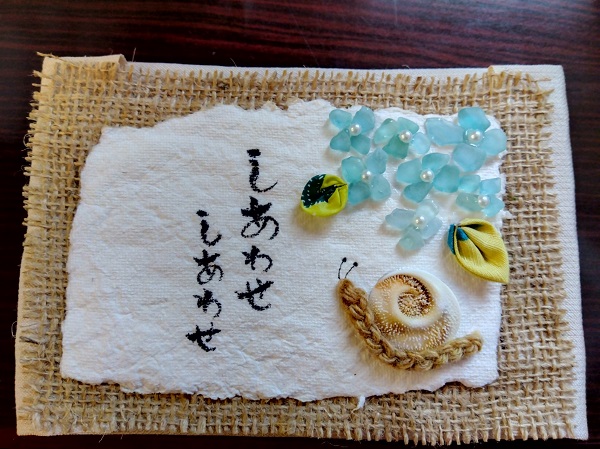 しあわせ
しあわせ